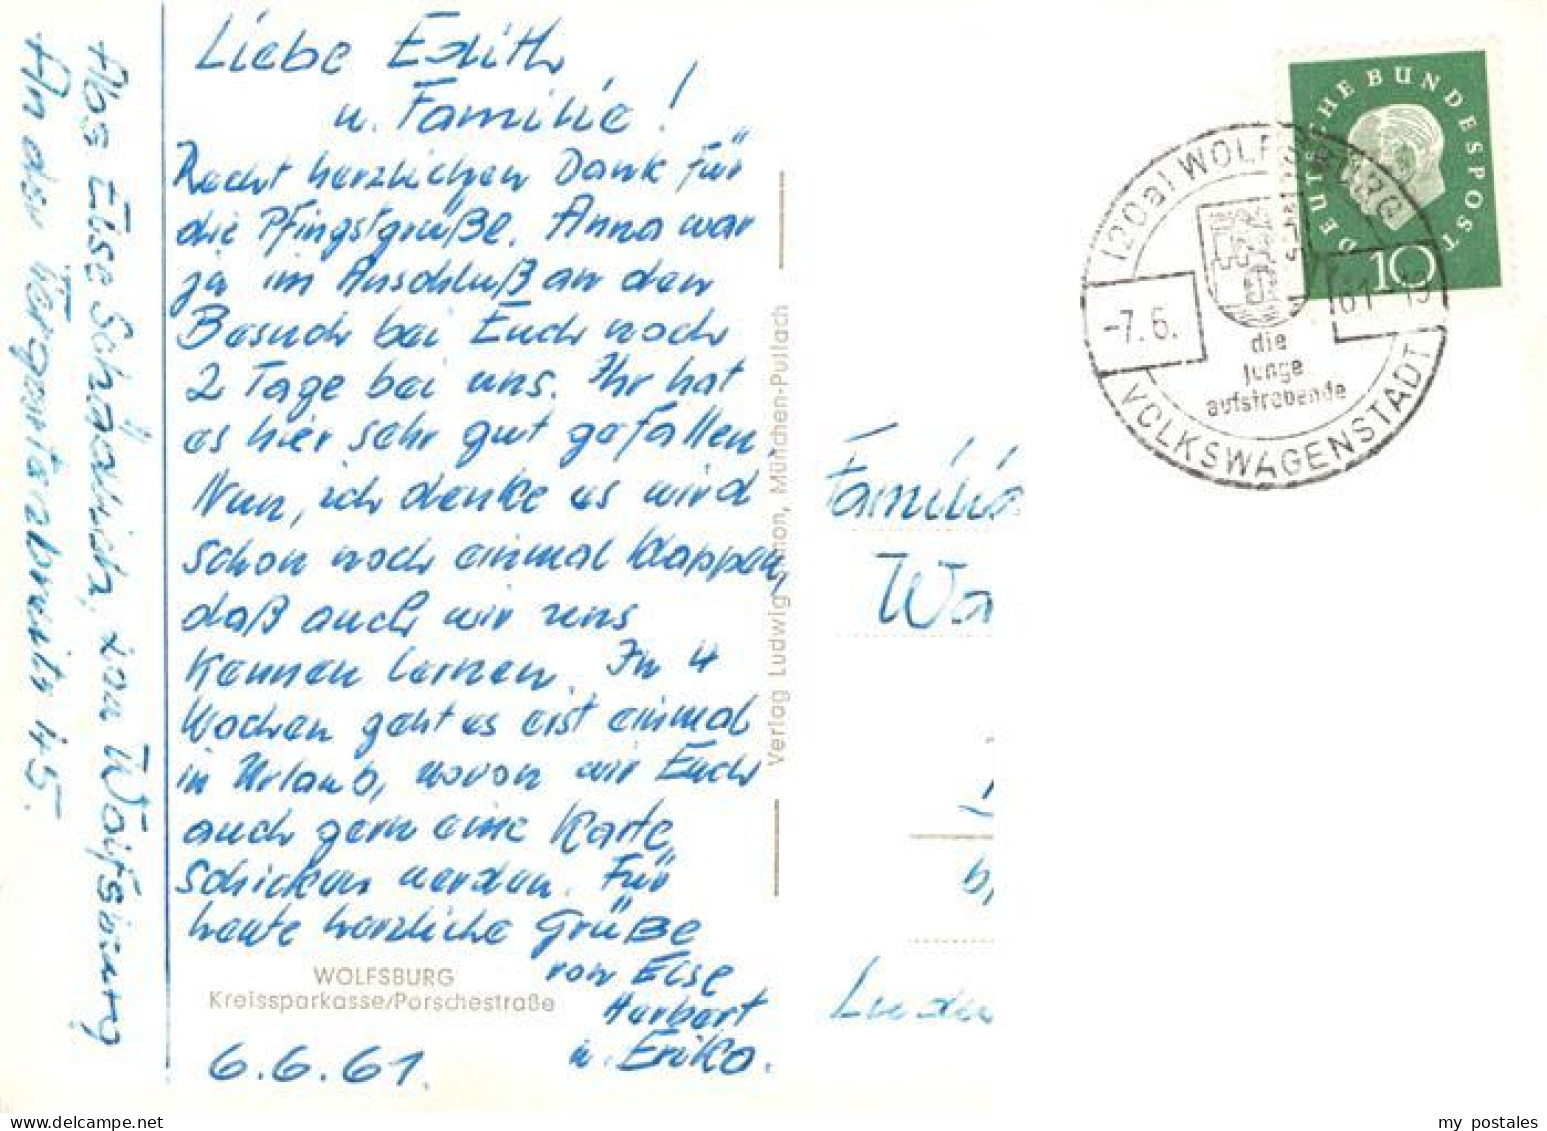 Liebe Edith
u. Familie!
Recht herzlichen Dank für
die Pfingstgrüße. Anna war
ja im Anschluß an den
Besuch bei Euch noch
2 Tage bei uns. Ihr hat
es hier sehr gut gefallen
Nun, ich denke es wird
schon noch einmal klappen,
daß auch wir uns
kennen lernen. In 4
Wochen geht es erst einmal
in Urlaub, wovon wir Euch
auch gern eine Karte
schicken werden. Für
heute herzliche Grüße
von Else
Herbert
u. Erika.
6.6.61.
WOLFSBURG
Kreissparkasse/Porschestraße
Abs Else Schädlich, 20a Wolfsburg
An der 45.
Verlag Ludwig München-Pullach
DEUTSCHE BUNDESPOST
10
(20a) WOLFSBURG
-7.6. 61-
die
junge
aufstrebende
VOLKSWAGENSTADT
Familie
Wa
b,
my postales